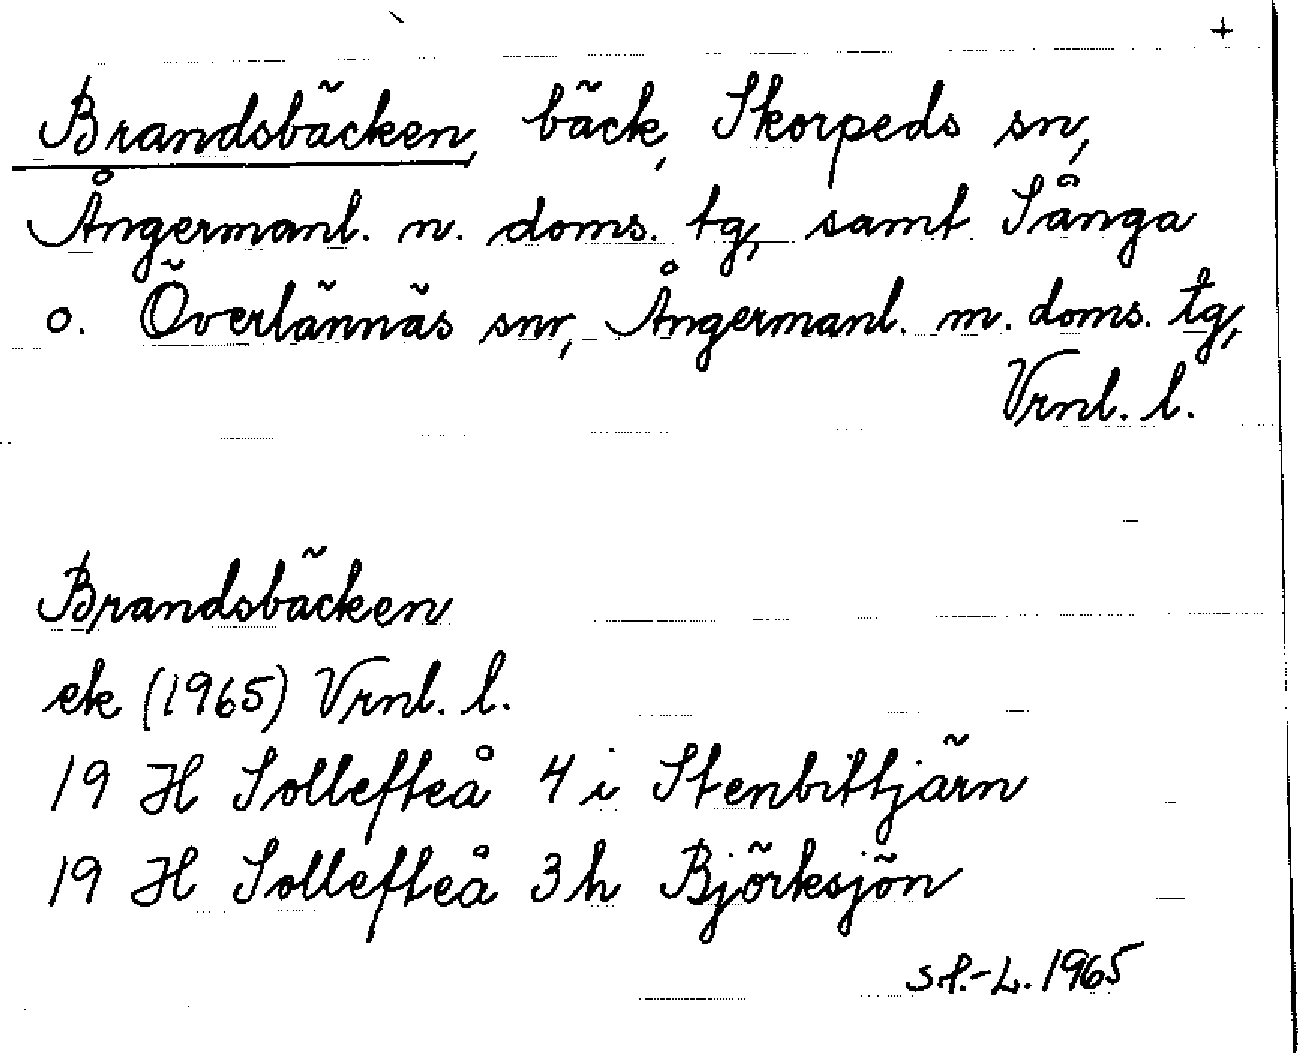 +
Brandsbäcken, bäck, Skorpeds sn,
Ångermanl. n. doms. tg, samt Sånga
o. Överlännäs snr, Ångermanl. m. doms. tg,
Vrnl. l.
Brandsbäcken
ek (1965) Vrnl. l.
19 H Sollefteå 4 i Stenbittjärn
19 H Sollefteå 3 h Björksjön
1965